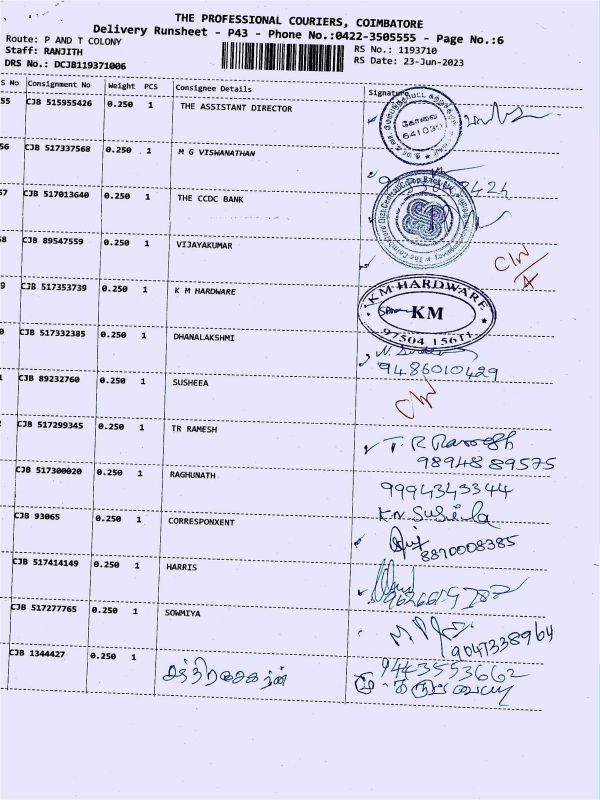 THE PROFESSIONAL COURIERS, COIMBATORE
Delivery Runsheet - P43 - Phone No.:0422-3505555 - Page No.:6
Route: P AND T COLONY
Staff: RANJITH
RS No.: 1193710
DRS No.: DCJB119371006
RS Date: 23-Jun-2023
S No Consignment No Weight PCS Consignee Details Signature
55 CJB 515955426 0.250 1 THE ASSISTANT DIRECTOR
கோவை
641030
56 CJB 517337568 0.250 1 M G VISWANATHAN
57 CJB 517013640 0.250 1 THE CCDC BANK
58 CJB 89547559 0.250 1 VIJAYAKUMAR
9 CJB 517353739 0.250 1 K M HARDWARE
KM HARDWARE
KM
97504 15611
0 CJB 517332385 0.250 1 DHANALAKSHMI
9486010429
CJB 89232760 0.250 1 SUSHEEA
CJB 517299345 0.250 1 TR RAMESH
T. R Ramesh
9894889575
CJB 517300020 0.250 1 RAGHUNATH
9994343344
K.N. Susila
CJB 93065 0.250 1 CORRESPONXENT
8870008385
CJB 517414149 0.250 1 HARRIS
CJB 517277765 0.250 1 SOWMIYA
9047338964
CJB 1344427 0.250 1 சந்திரசேகரன்
9443553662